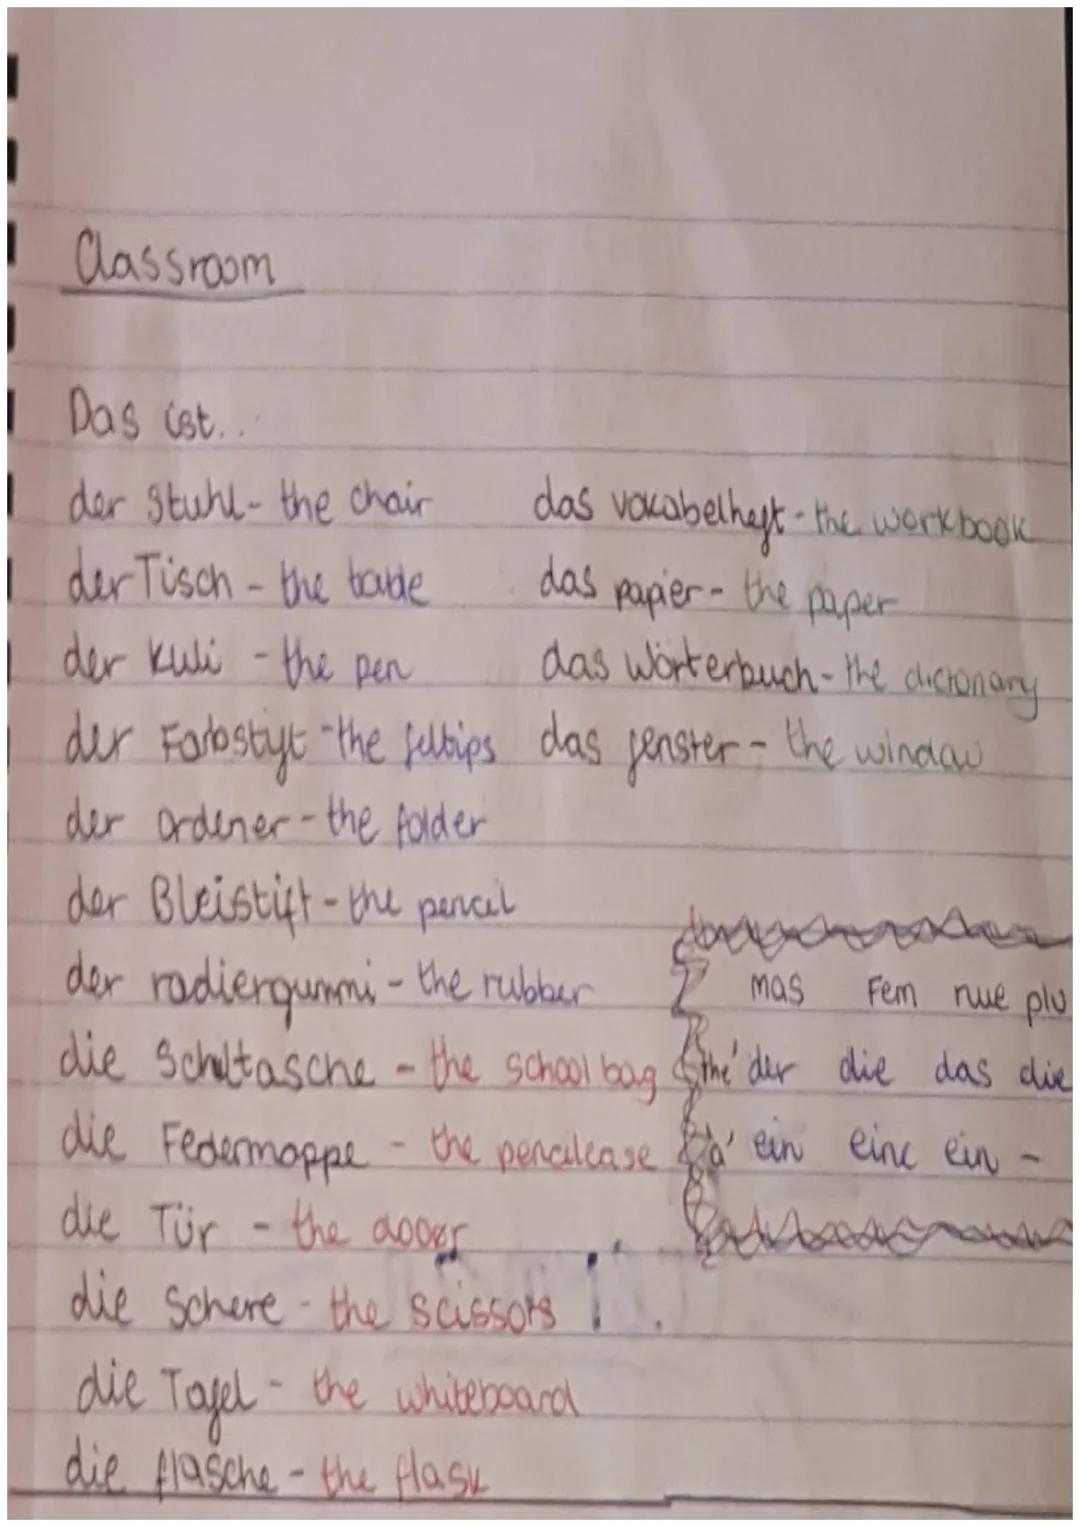 Classroom
Das ist...
der Stuhl - the chair
der Tisch - the table
der Kuli - the pen
der Farbstift - the feltips
der ordener - the folder
der Bleistift - the pencil
der radiergummi - the rubber
die Schultasche - the school bag
die Federmappe - the pencilcase
die Tür - the door
die Schere - the scissors
die Tafel - the whiteboard
die flasche - the flask
das vokabelheft - the workbook
das papier - the paper
das Wörterbuch - the dictonary
das fenster - the window
mas Fem nue plu
'the' der die das die
'a' ein eine ein -